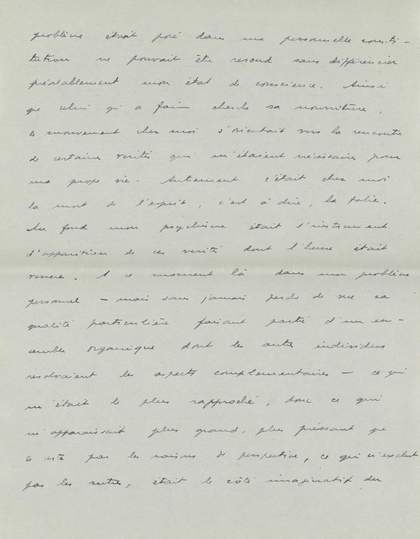 problème était posé dans ma personnelle consti-
tution ne pouvait être résoud sans différencier
préalablement mon état de conscience. Ainsi
que celui qui a faim cherche sa nourriture,
ce mouvement chez moi s'orientait vers la rencontre
de certaines vérités qui m'étaient nécessaires pour
ma propre vie. Autrement c'était chez moi
la mort de l'esprit, c'est à dire, la folie.
Au fond mon psychisme était l'instrument
d'apparition de ces vérités dont l'heure était
venue. A ce moment là dans mon problème
personnel – mais sans jamais perdre de vue sa
qualité particulière faisant partie d'un en-
semble organique dont les autres individus
resolvaient les aspects complémentaires – ce qui
m'était le plus rapproché, donc ce qui
m'apparaissait plus grand, plus pressant que
le reste par les raisons de perspective, ce qui n'exclut
pas les autres, était le côté imaginatif des